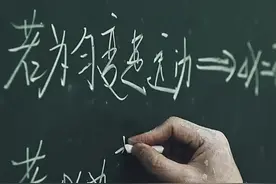 若为匀变速运动⇒△X=
若